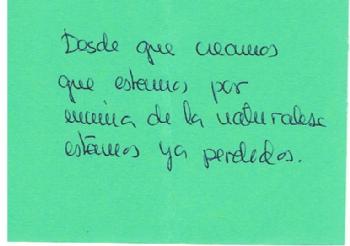 Desde que creamos
que estamos por
encima de la naturaleza
estamos ya perdidos.